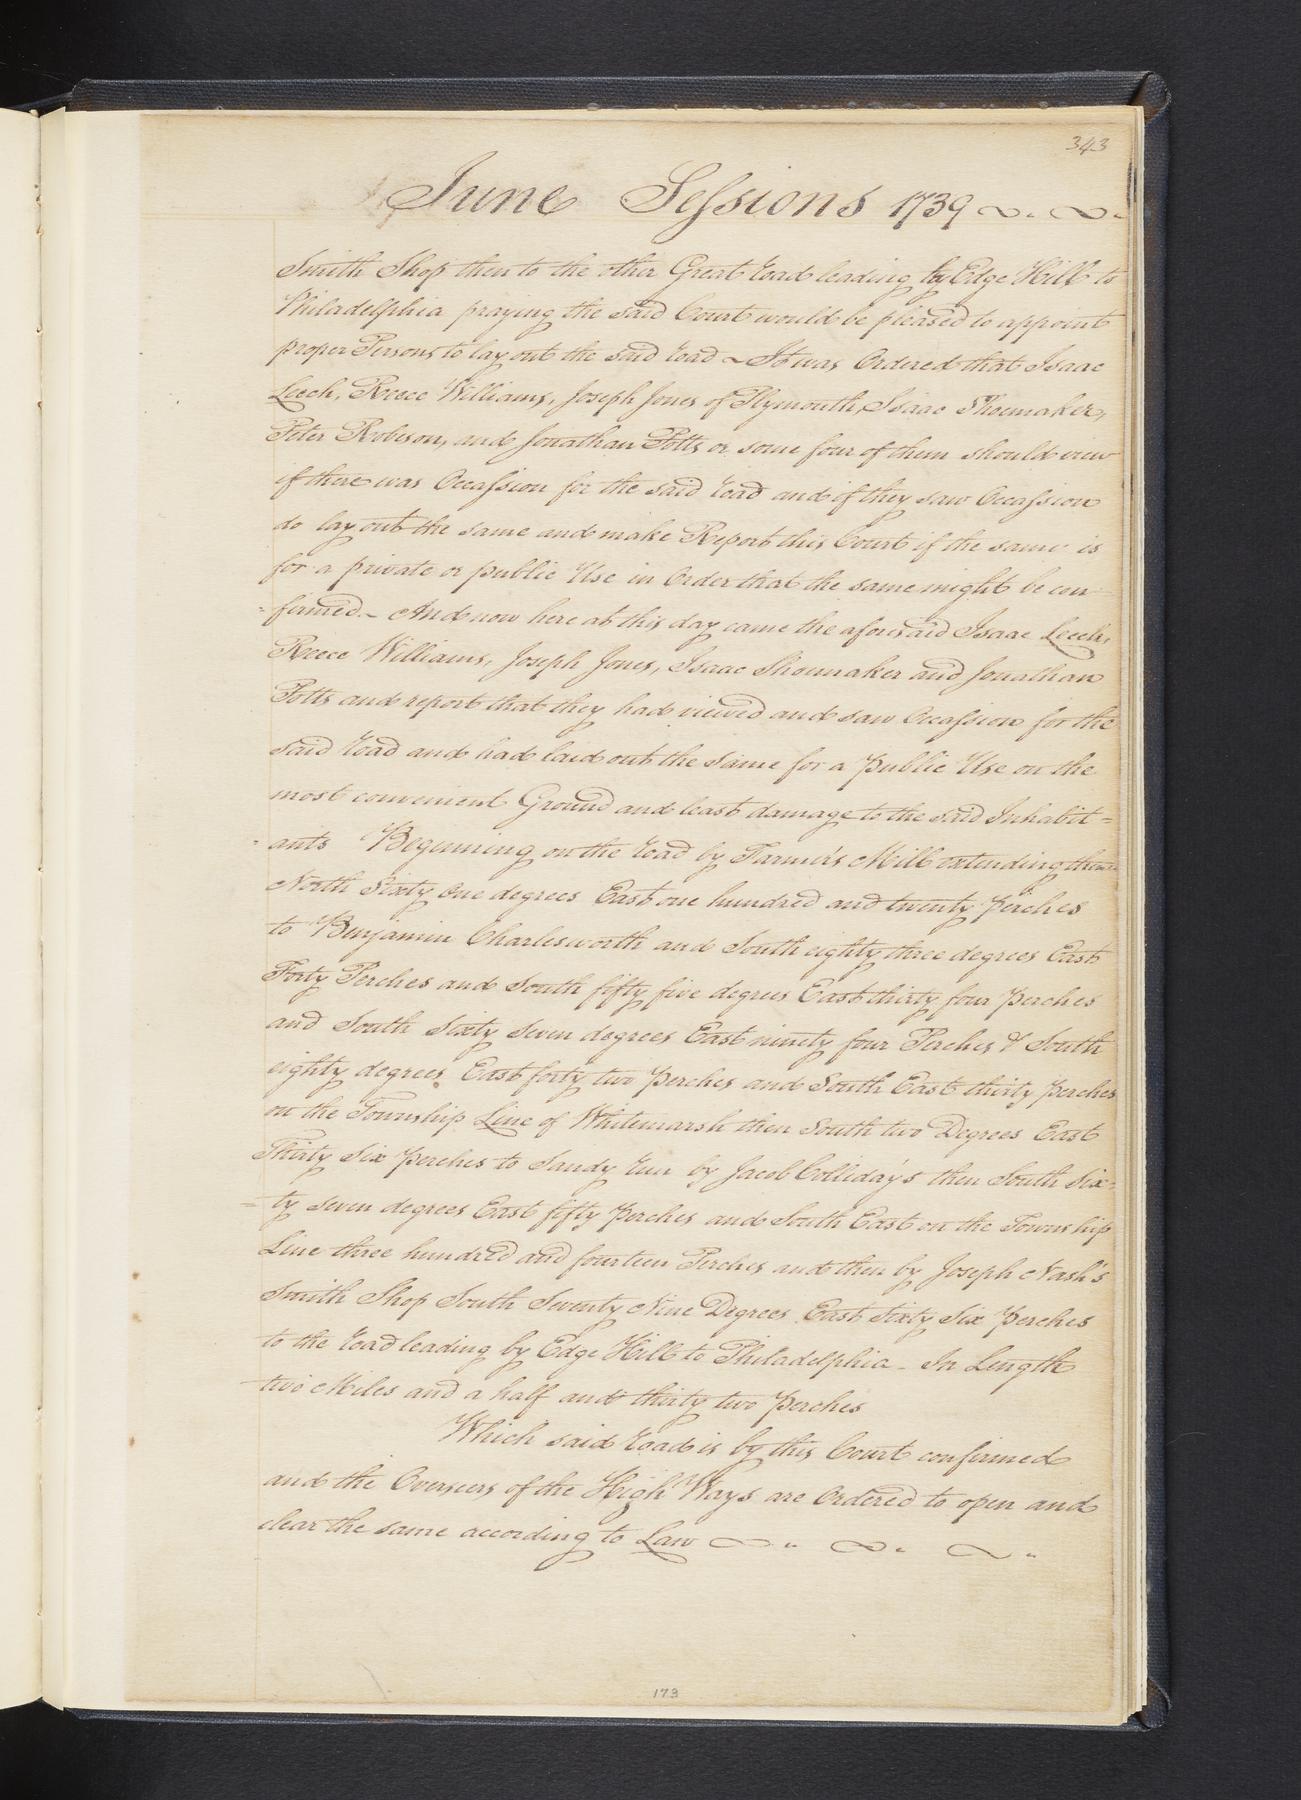 343
June Sessions 1739
Smith Shop then to the other Great Road leading by Edge Hill to
Philadelphia praying the said Court would be pleased to appoint
proper Persons to lay out the said Road ~ It was Ordered that Isaac
Leech, Reece Williams, Joseph Jones of Plymouth, Isaac Shoemaker,
Peter Robison, and Jonathan Potts or some four of them should view
if there was Occassion for the said Road and if they saw Occassion
do lay out the same and make Report this Court if the same is
for a private or public Use in Order that the same might be con=
=firmed. ~ And now here at this day came the aforesaid Isaac Leech,
Reece Williams, Joseph Jones, Isaac Shoemaker and Jonathan
Potts and report that they had viewed and saw Occassion for the
said Road and had laid out the same for a Public Use on the
most convenient Ground and least damage to the said Inhabit=
=ants Beginning on the Road by Farmer's Mill extending thence
North Sixty One degrees East one hundred and twenty Perches
to Benjamin Charlesworth and South eighty three degrees East
Forty Perches and South fifty five degrees East thirty four Perches
and South Sixty Seven degrees East ninety four Perches & South
eighty degrees East forty two Perches and South East thirty Perches
on the Township Line of Whitemarsh then South two Degrees East
Thirty Six Perches to Sandy Run by Jacob Colliday's then South Six=
=ty seven degrees East fifty Perches and South East on the Township
Line three hundred and fourteen Perches and then by Joseph Nash's
Smith Shop South Seventy Nine Degrees East Sixty Six Perches
to the Road leading by Edge Hill to Philadelphia - In Length
two Miles and a half and thirty two Perches
Which said Road is by this Court confirmed
and the Overseers of the High Ways are Ordered to open and
clear the same according to Law
173